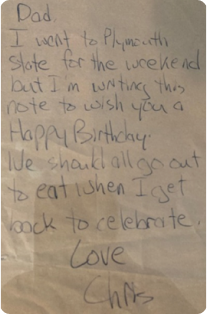 Dad.
I went to Plymouth
State for the weekend
but I'm writing this
note to wish you a
Happy Birthday.
We should all go out
to eat when I get
back to celebrate.
Love
Chris